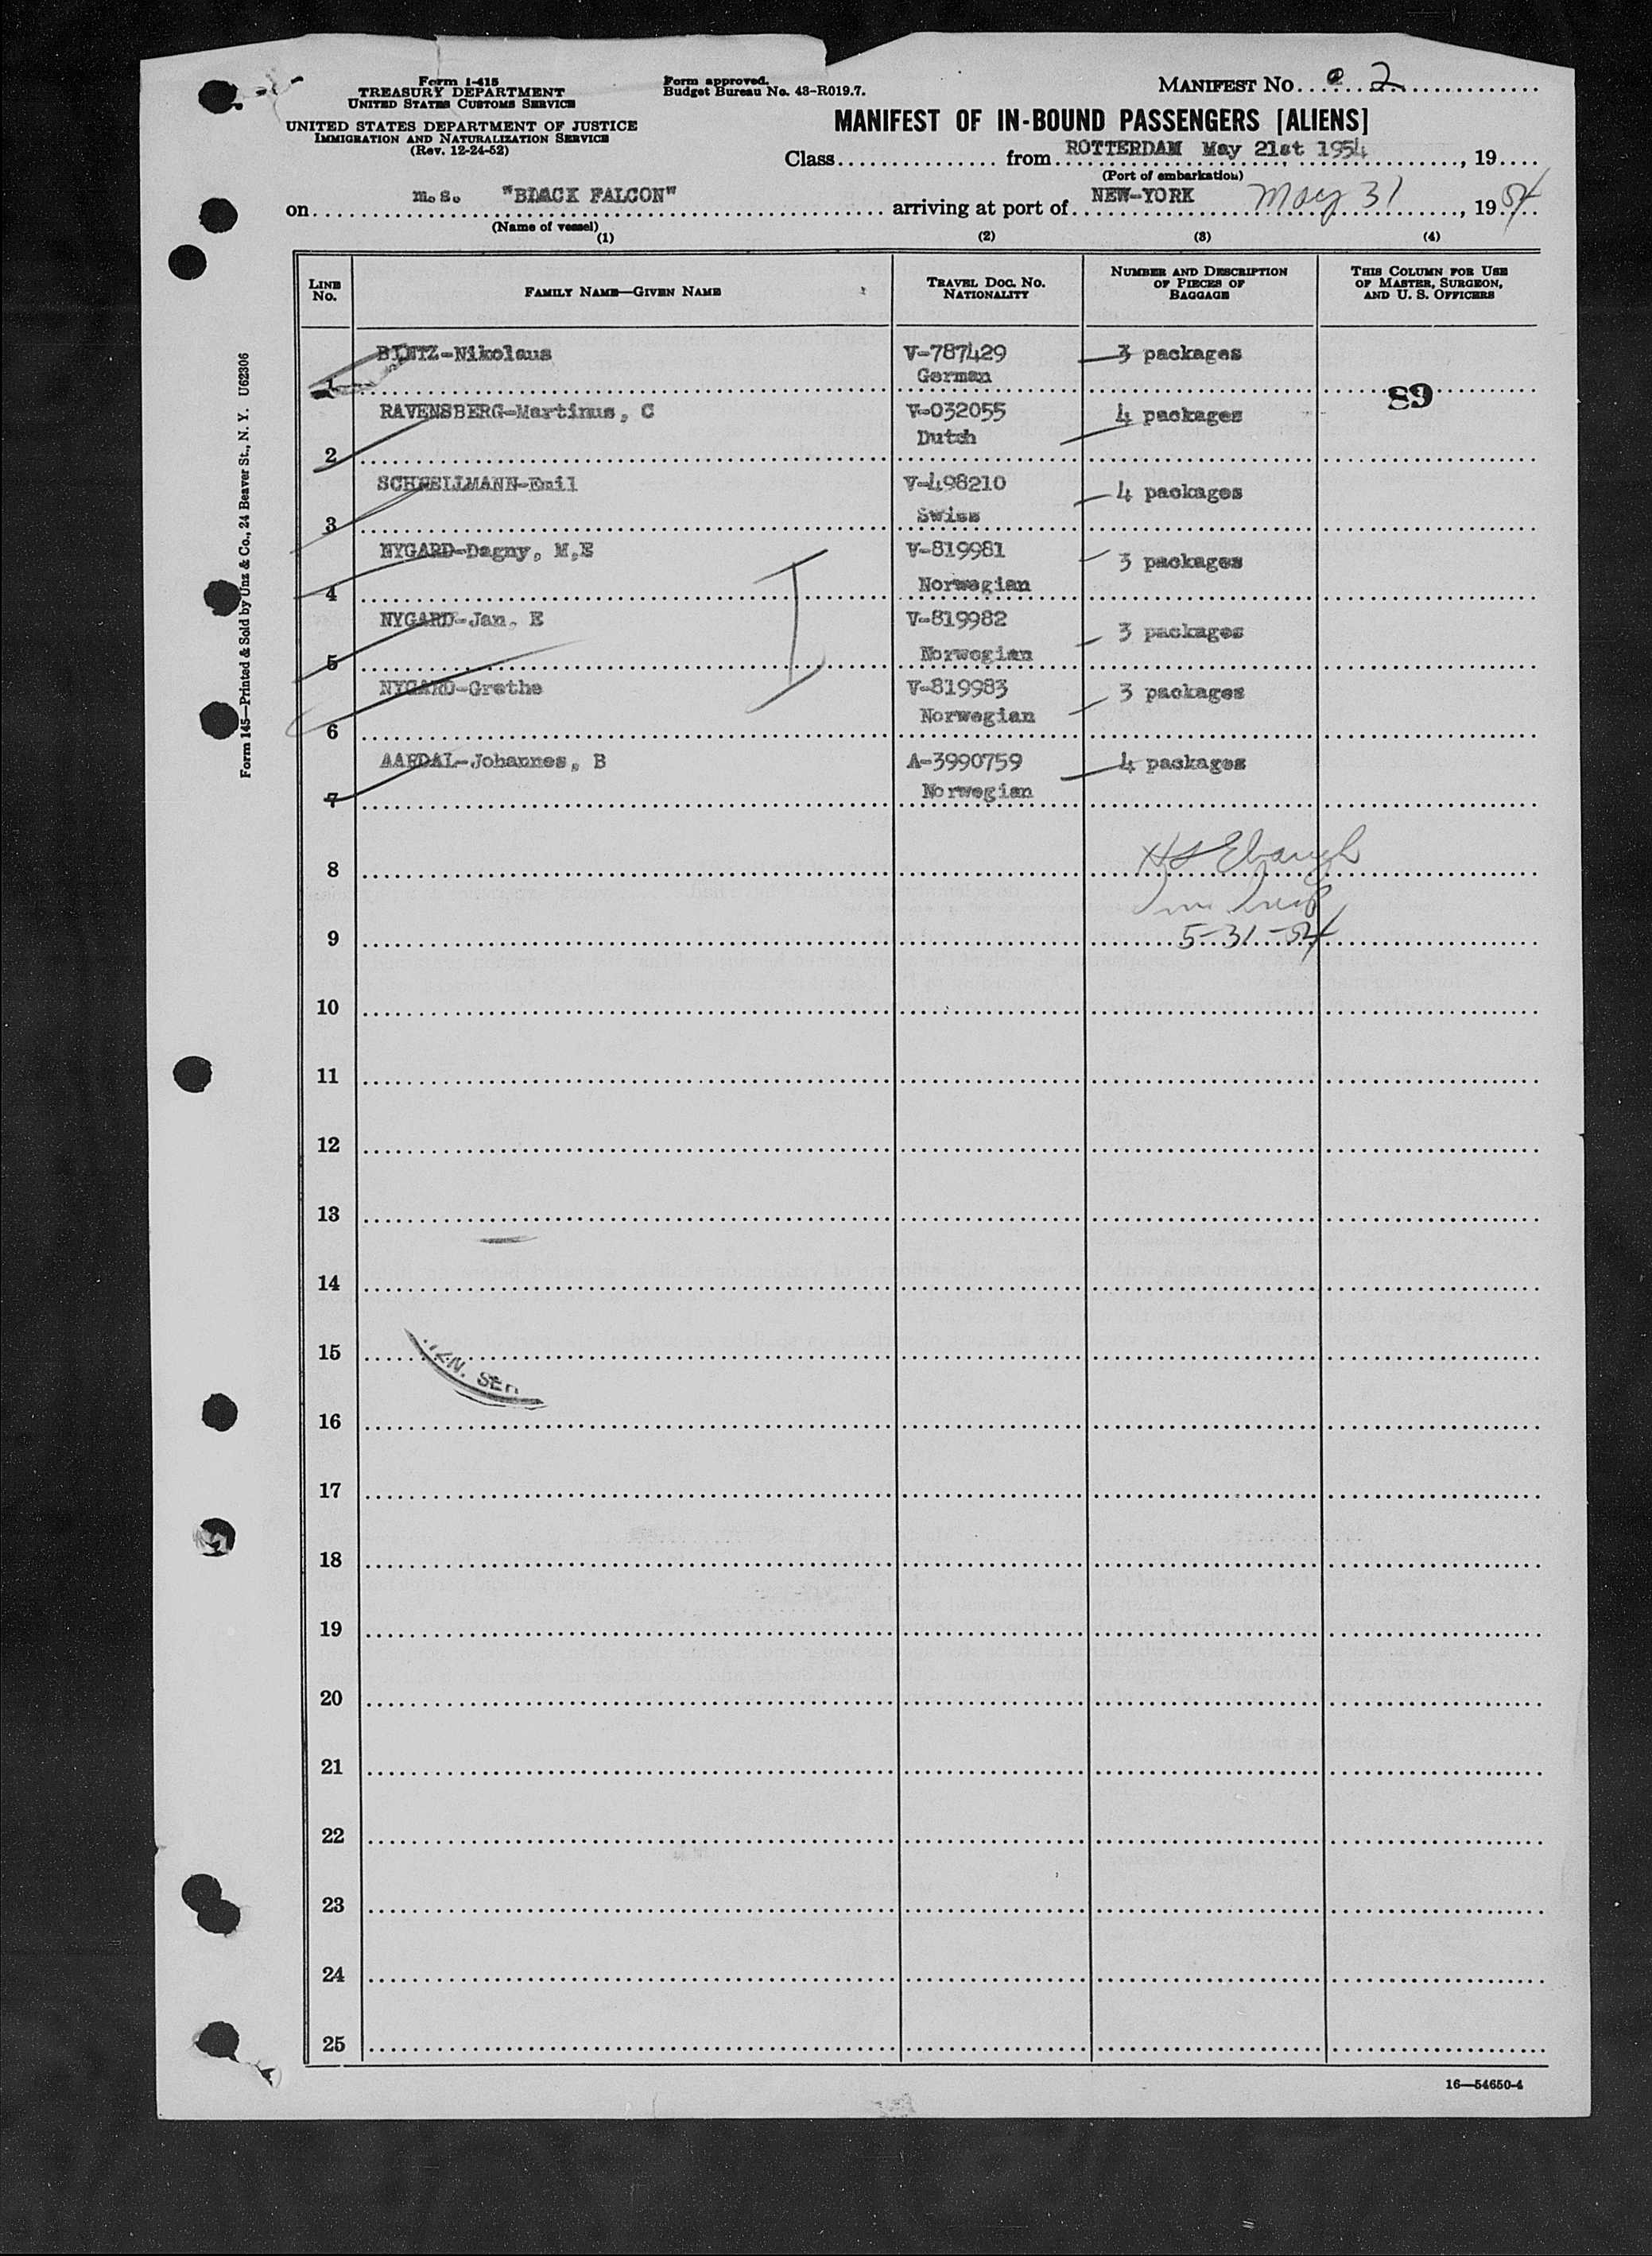 Form I-415
TREASURY DEPARTMENT
UNITED STATES CUSTOMS SERVICE
UNITED STATES DEPARTMENT OF JUSTICE
IMMIGRATION AND NATURALIZATION SERVICE
(Rev. 12-24-52)
Form approved.
Budget Bureau No. 43-R019.7.
MANIFEST NO. 2
MANIFEST OF IN-BOUND PASSENGERS [ALIENS]
Class from ROTTERDAM May 21st 1954, 19
(Port of embarkation)
on m.s. "BLACK FALCON" arriving at port of NEW-YORK May 31, 1954
(Name of vessel)
(1) (2) (3) (4)
LINE NO. FAMILY NAME—GIVEN NAME TRAVEL DOC. NO. NATIONALITY NUMBER AND DESCRIPTION OF PIECES OF BAGGAGE THIS COLUMN FOR USE OF MASTER, SURGEON, AND U. S. OFFICERS
1 BINTZ-Nikolaus V-787429 German 3 packages
89
2 RAVENSBERG-Martinus, C V-032055 Dutch 4 packages
3 SCHNELLMANN-Emil V-498210 Swiss 4 packages
4 NYGARD-Dagny, M,E V-819981 Norwegian 3 packages
5 NYGARD-Jan, E V-819982 Norwegian 3 packages
6 NYGARD-Grethe V-819983 Norwegian 3 packages
7 AARDAL-Johannes, B A-3990759 Norwegian 4 packages
8 Ebaugh
9 5-31-54
10
11
12
13
14
15
ZN. SER
16
17
18
19
20
21
22
23
24
25
16—54650-4
Form 145—Printed & Sold by Unz & Co., 24 Beaver St., N. Y. U62306